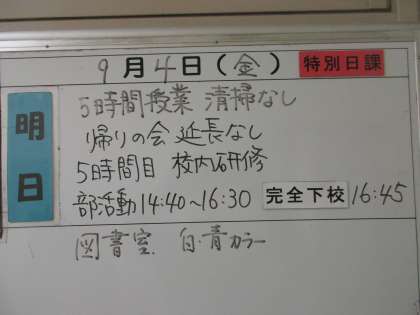 9月4日(金) 特別日課
明日
5時間授業 清掃なし
帰りの会 延長なし
5時間目 校内研修
部活動14:40~16:30 完全下校 16:45
図書室 白・青カラー